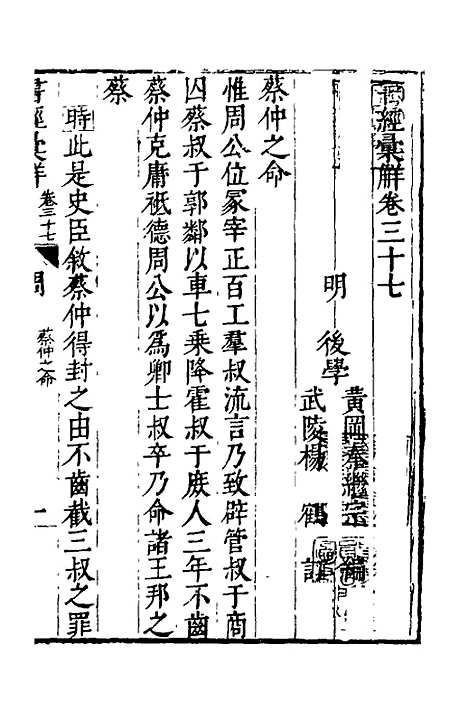 書經彙解卷三十七
明
後學
黃岡秦繼宗
編
武陵楊鶴
訂
蔡仲之命
惟周公位冢宰正百工羣叔流言乃致辟管叔于商
囚蔡叔于郭鄰以車七乘降霍叔于庶人三年不齒
蔡仲克庸祗德周公以爲卿士叔卒乃命諸王邦之
蔡
時此是史臣敘蔡仲得封之由不齒截三叔之罪
書經彙解
卷三十七
周
蔡仲之命
一